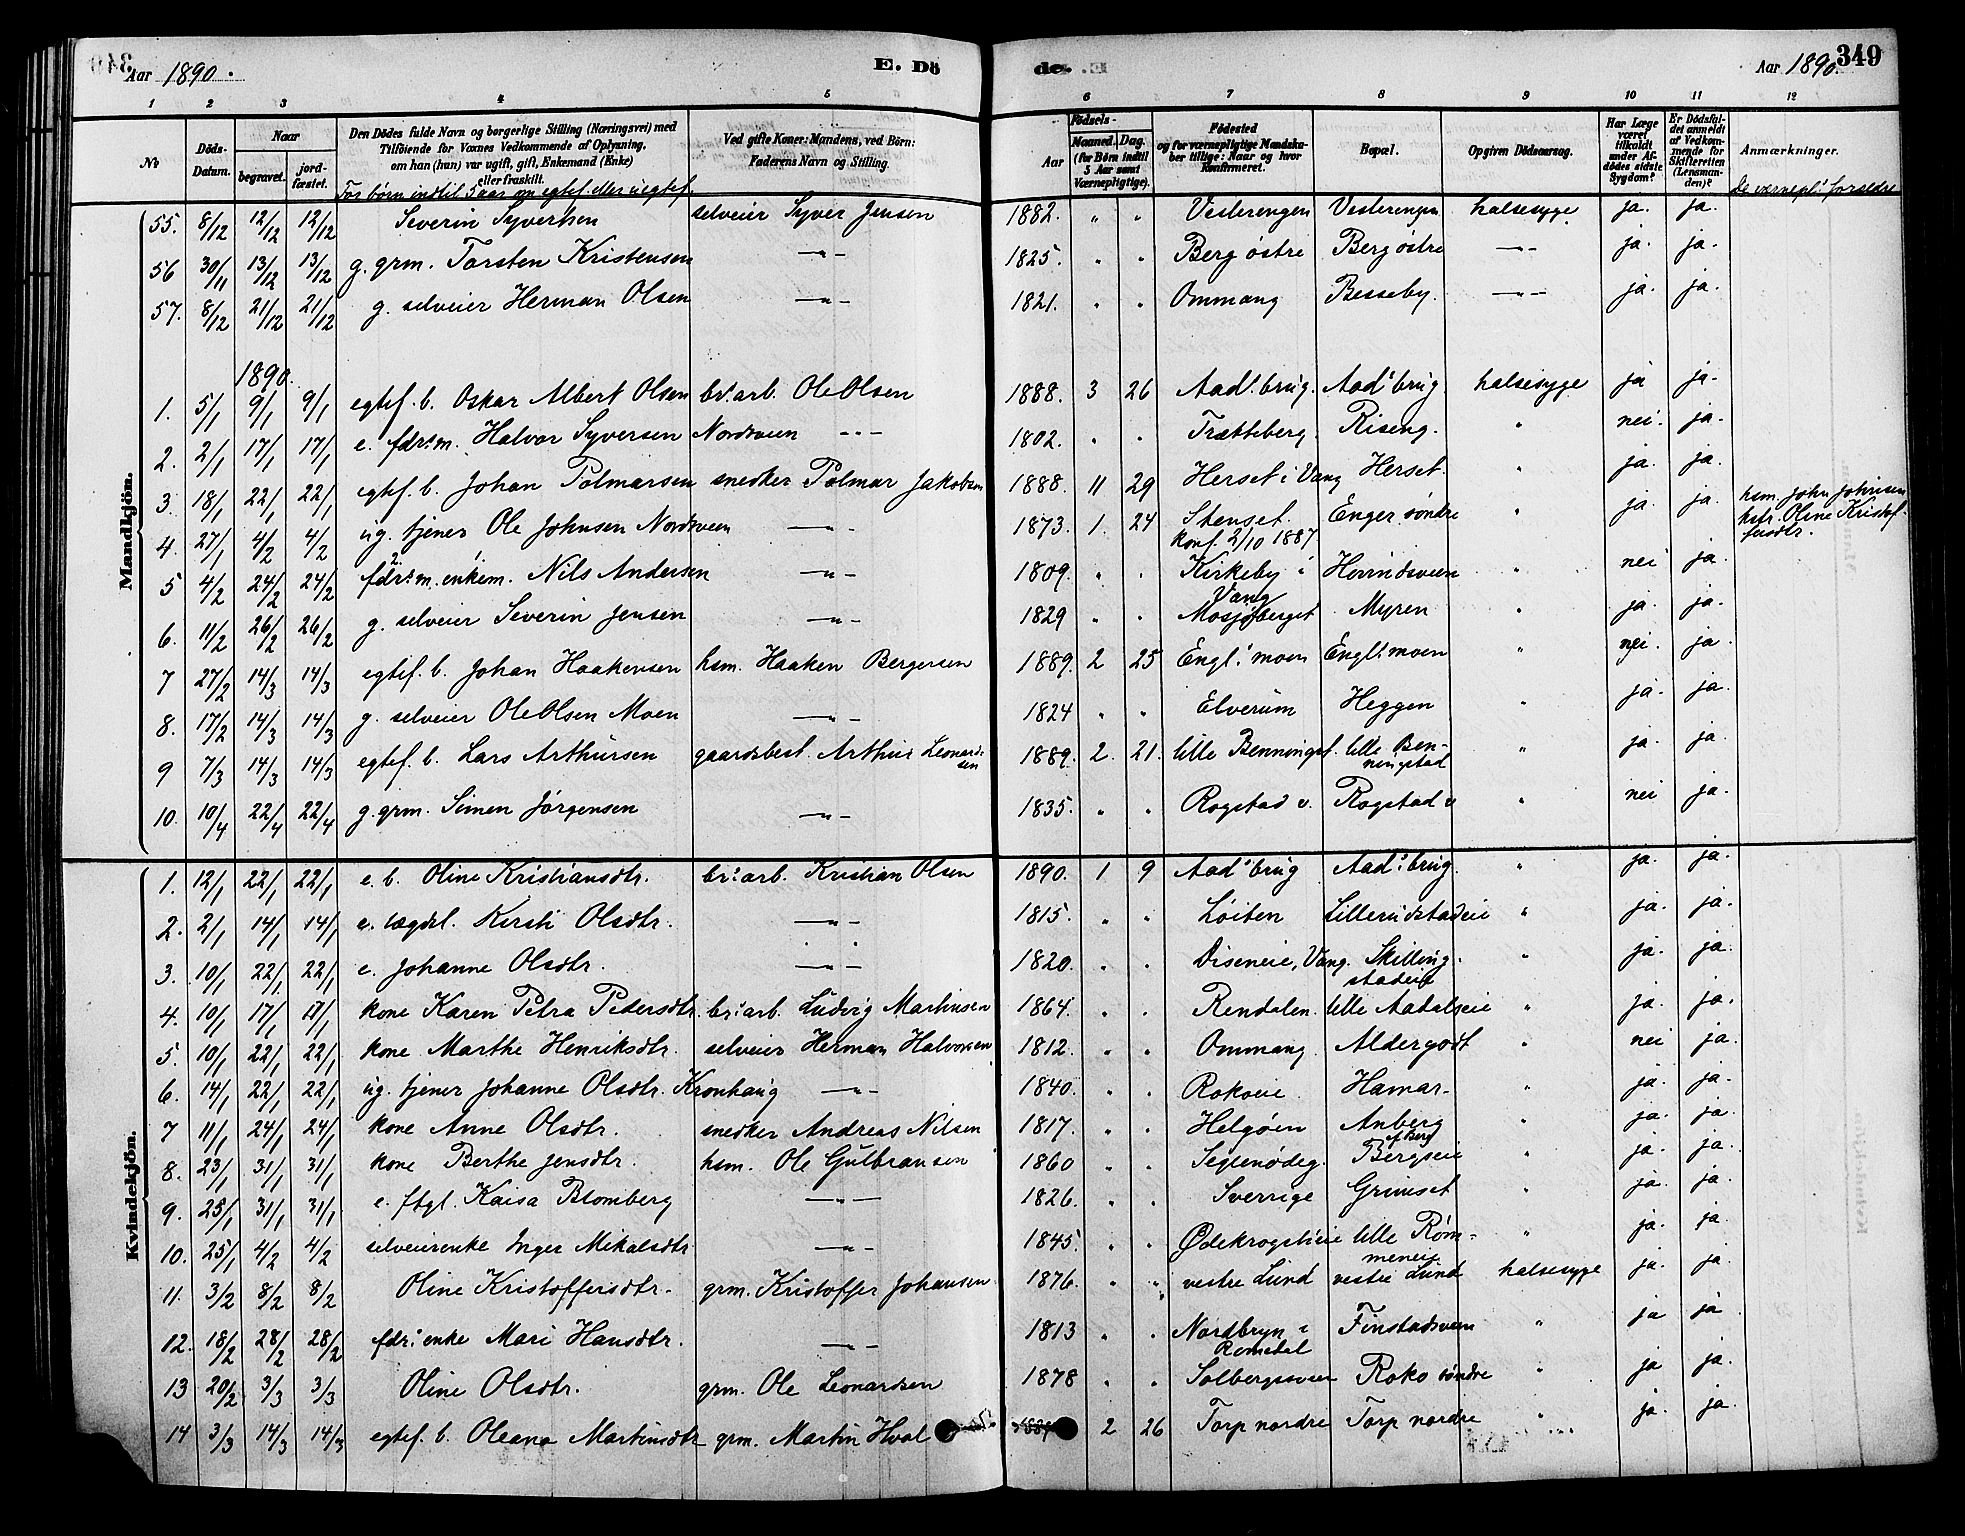 Aar 1890. E. Dö
de. Aar 1890. 349
1 2 3 4 5 6 7 8 9 10 11 12
No | Döds-Datum. | Naar begravet. | jord-fæstet. | Den Dödes fulde Navn og borgerlige Stilling (Næringsvei) med Tilföiende for Voxnes Vedkommende af Oplysning, om han (hun) var ugift, gift, Enkemand (Enke) eller fraskilt. For börn indtil 5 aar om egtef. eller uegtef. | Ved gifte Koner: Mandens, ved Börn: Faderens Navn og Stilling. | Födsels- Aar | Maaned. Dag. (for Börn indtil 5 Aar samt Værnepligtige). | Födested og for værnepligtige Mandskaber tillige: Naar og hvor Konfirmeret. | Bopæl. | Opgiven Dödsaarsag. | Har Læge været tilkaldt under Afdödes sidste Sygdom? | Er Dödsfaldet anmeldt af Vedkommende for Skifteretten (Lensmanden)? | Anmærkninger. De værnepl: forældre
Mandkjön.
55. 8/12 12/12 12/12 Severin Syvertsen selveier Syver Jensen 1882. " " Vesterengen Vesterengen halsesyge ja. ja.
56 30/11 13/12 13/12 g. grm. Torsten Kristensen —"— 1825. " " Berg østre Berg østre —"— ja ja.
57. 8/12 21/12 21/12 g. selveier Herman Olsen —"— 1821. " " Ommang Besseby. —"— ja. ja.
1890.
1. 5/1 9/1 9/1 egtef. b. Oskar Albert Olsen br: arb. Ole Olsen 1888. 3 26 Aad: brug. Aad: brug. halsesyge ja ja.
2. 2/1 17/1 17/1 e. fdr: m. Halvor Syversen Nordsveen —"— 1802. " " Trætteberg. Riseng. " nei. ja.
3. 18/1 22/1 22/1 egtef. b. Johan Polmarsen snedker Polmar Jakobsen 1888. 11 29 Herset i Vang Herset. " ja. ja.
4. 27/1 4/2 4/2 ug. tjener Ole Johnsen Nordsveen —"— 1873. 1. 24 Stenset. konf. 2/10 1887 Enger søndre " ja. ja. hsm. John Johnsen hstr. Oline Kristoffersdtr.
5 4/2 24/2 24/2 fdr: m. enkem. Nils Andersen —"— 1809. " " Kirkeby i Vang " nei ja.
6. 11/2 26/2 26/2 g. selveier Severin Jensen —"— 1829 " " Mosjøberget Myren " ja. ja.
7 27/2 14/3 14/3 egtef. b. Johan Haakensen hsm. Haaken Bergersen 1889. 2 25 Engl: moen Engl: moen " nei. ja
8. 17/2 14/3 14/3 g. selveier Ole Olsen Moen —"— 1824 " " Elverum Heggen " ja. ja.
9 7/3 14/3 14/3 egtef. b. Lars Arthursen gaardsbest. Arthur Leonardsen 1889. 2. 21. lille Benningst. lille Benningstad " ja. ja.
10. 10/4 22/4 22/4 g. grm. Simen Jörgensen —"— 1835. " " Rogstad v. Rogstad v " nei ja.
Kvindekjön.
1. 12/1 22/1 22/1 e. b. Oline Kristiansdtr. br: arb. Kristian Olsen 1890. 1 9 Aad: brug Aad: brug. " ja. ja.
2. 2/1 14/1 14/1 e. lægdsl. Kersti Olsdtr. —"— 1815. " " Löiten Lillerudstadeie " ja. ja.
3. 10/1 22/1 22/1 e. Johanne Olsdtr. —"— 1820. " " Diseneie, Vang. Skillingstadeie " ja. ja.
4. 10/1 17/1 17/1 kone Karen Petra Pedersdtr. br: arb. Ludvig Martinsen 1864. " " Rendalen. lille Aadalseie " ja. ja.
5. 10/1 22/1 22/1 kone Marthe Henriksdtr. selveier Herman Halvorsen 1812. " " Ommang. Aldergodt " nei ja.
6. 14/1 22/1 22/1 ug. tjener Johanne Olsdtr. Kronhaug —"— 1840. " " Rokoeie Hamar. " ja. ja.
7 11/1 24/1 24/1 kone Anne Olsdtr. snedker Andreas Nilsen 1817. " " Helgöen Anberg " ja. ja.
8. 23/1 31/1 31/1 kone Berthe Jensdtr. hsm. Ole Gulbransen 1860 " " Seglenödeg. Bergseie " ja. ja.
9. 25/1 31/1 31/1 e. ftgl. Kaisa Blomberg —"— 1826. " " Sverrige Grimset " ja. ja.
10. 25/1 4/2 4/2 selveierenke Inger Mikalsdtr —"— 1845. " " lille Römmeneie " ja. ja.
11. 3/2 8/2 8/2 Oline Kristoffersdtr. grm. Kristoffer Johansen. 1876. " " vestre Lund vestre Lund halsesyge ja. ja.
12. 18/2 28/2 28/2 fdr: enke Mari Hansdtr. —"— 1813 " " Nordbryn i Romedal Finstadsveen " ja ja
13 20/2 3/3 3/3 Oline Olsdtr. grm. Ole Leonardsen 1878 " " Solbergsveen Roko söndre " ja ja.
14 3/3 14/3 14/3 egtef. b. Oleana Martinsdtr grm. Martin Hval 2 26 Torp nordre Torp nordre " ja. ja.